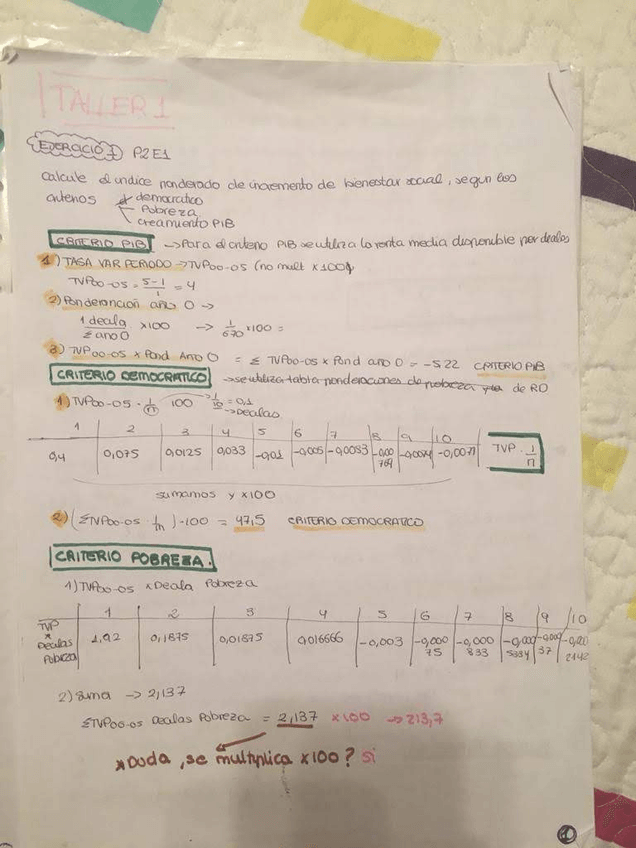 TALLER 1
EJERCICIO 1 P2E1
Calcule el indice ponderado de incremento de bienestar social, segun los
criterios democratico
Pobreza
creamiento PIB
CRITERIO PIB → Para el criterio PIB se utiliza la renta media disponible por decilas
1) TASA VAR PERIODO → TVP00-05 (no mult x100)
TVP00-05 = 5-1/1 = 4
2) Ponderancion año 0 →
1 decila/Σ año 0 x100 → 1/670 x100 =
3) TVP 00-05 x Pond Año 0 = Σ TVP00-05 x Pond año 0 = -5'22 CRITERIO PIB
CRITERIO DEMOCRATICO → se utiliza tabla ponderaciones de pobreza de RD
1) TVP00-05 · 1/n 100 → 1/10 = 0,1
→ Decilas
1 2 3 4 5 6 7 8 9 10
0,4 0,075 0,0125 0,033 -0,01 -0,005 -0,0083 -0,00769 -0,0074 -0,0071 TVP · 1/n
sumamos y x100
2) (ΣTVP00-05 1/n) · 100 = 47,5 CRITERIO DEMOCRATICO
CRITERIO POBREZA.
1) TVP00-05 x Decila Pobreza
1 2 3 4 5 6 7 8 9 10
TVP x Decilas Pobreza 1,92 0,1875 0,01875 0,016666 -0,003 -0,00075 -0,000833 -0,0005334 -0,00037 -0,0002142
2) suma → 2,137
ΣTVP00-05 Decilas Pobreza = 2,137 x100 → 213,7
*Duda, se multiplica x100? Si